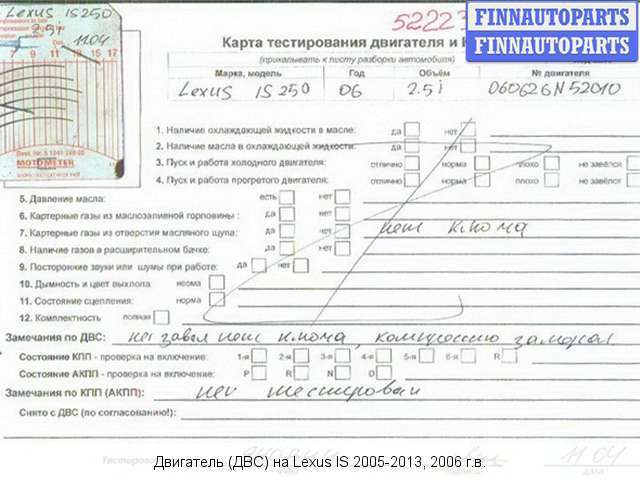 Lexus IS250
2.5i
11.04
7 9 11 15 17
MOTOMETER
5222
FINNAUTOPARTS
FINNAUTOPARTS
Карта тестирования двигателя и К
(прикалывать к листу разборки автомобиля)
Марка, модель Год Объём № двигателя
Lexus IS 250 06 2.5i 060626N52010
1. Наличие охлаждающей жидкости в масле: да нет
2. Наличие масла в охлаждающей жидкости: да нет
3. Пуск и работа холодного двигателя: отлично норма плохо не завёлся
4. Пуск и работа прогретого двигателя: отлично норма плохо не завёлся
5. Давление масла: есть нет
6. Картерные газы из маслозаливной горловины : да нет
7. Картерные газы из отверстия масляного щупа: да нет нет ключа
8. Наличие газов в расширительном бачке: да нет
9. Посторонние звуки или шумы при работе: да нет
10. Дымность и цвет выхлопа норма
11. Состояние сцепления: норма
12. Комплектность полная
Замечания по ДВС: не завел нет ключа, компрессию замерял
Состояние КПП - проверка на включение: 1-я 2-я 3-я 4-я 5-я 6-я R
Состояние АКПП - проверка на включение: P R N D
Замечания по КПП (АКПП): не тестировал
Снято с ДВС (по согласованию!):
11.04
дата
Двигатель (ДВС) на Lexus IS 2005-2013, 2006 г.в.